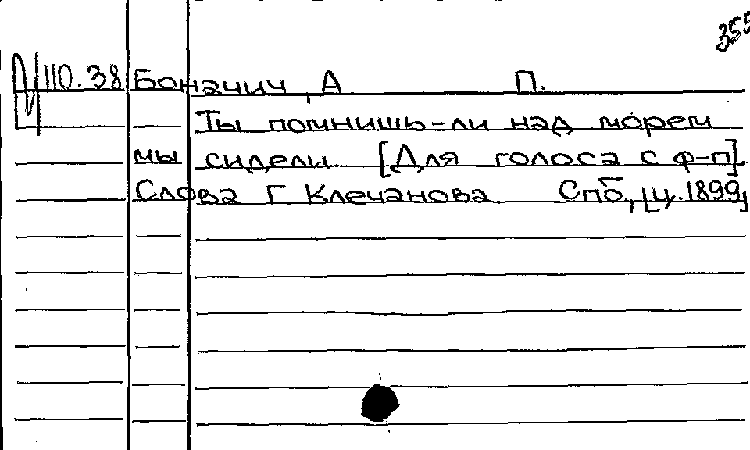 355
110.38 Боначич, А. П.
Ты помнишь-ли над морем
мы сидели. [Для голоса с ф-п].
Слова Г. Клечанова. Спб., [ц. 1899]